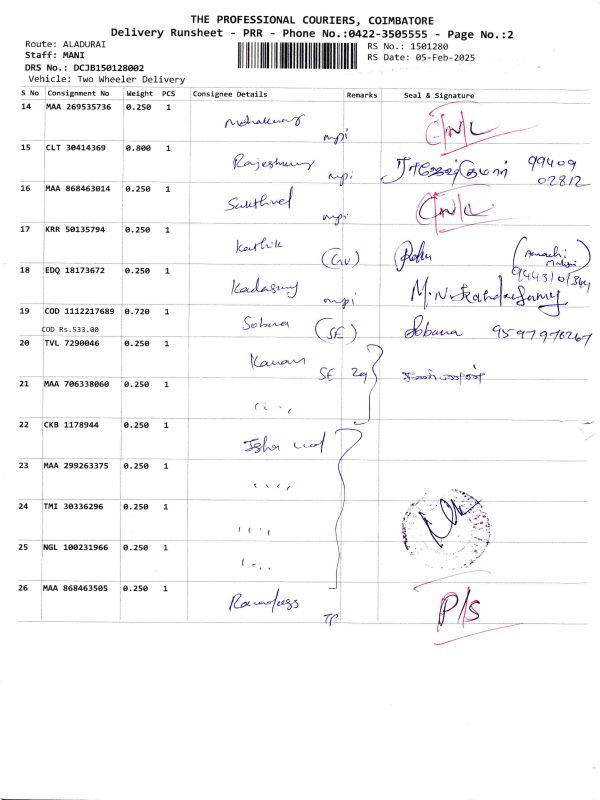 THE PROFESSIONAL COURIERS, COIMBATORE
Delivery Runsheet - PRR - Phone No.:0422-3505555 - Page No.:2
Route: ALADURAI
RS No.: 1501280
Staff: MANI
RS Date: 05-Feb-2025
DRS No.: DCJB150128002
Vehicle: Two Wheeler Delivery
S No Consignment No Weight PCS Consignee Details Remarks Seal & Signature
14 MAA 269535736 0.250 1 mpi C/N/L
15 CLT 30414369 0.800 1 mpi 99409
02812
16 MAA 868463014 0.250 1 Sakthivel mpi C/N/L
17 KRR 50135794 0.250 1 Karthik (GV)
18 EDQ 18173672 0.250 1 mpi
19 COD 1112217689 0.720 1 Sobana (SE) Sobana
COD Rs.533.00
20 TVL 7290046 0.250 1 SE
21 MAA 706338060 0.250 1 " "
22 CKB 1178944 0.250 1
23 MAA 299263375 0.250 1 " "
24 TMI 30336296 0.250 1 " "
25 NGL 100231966 0.250 1 " "
26 MAA 868463505 0.250 1 TP P/S